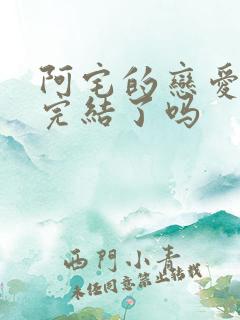 阿宅的戀愛
完結了吗
西門小青
未经同意禁止转载